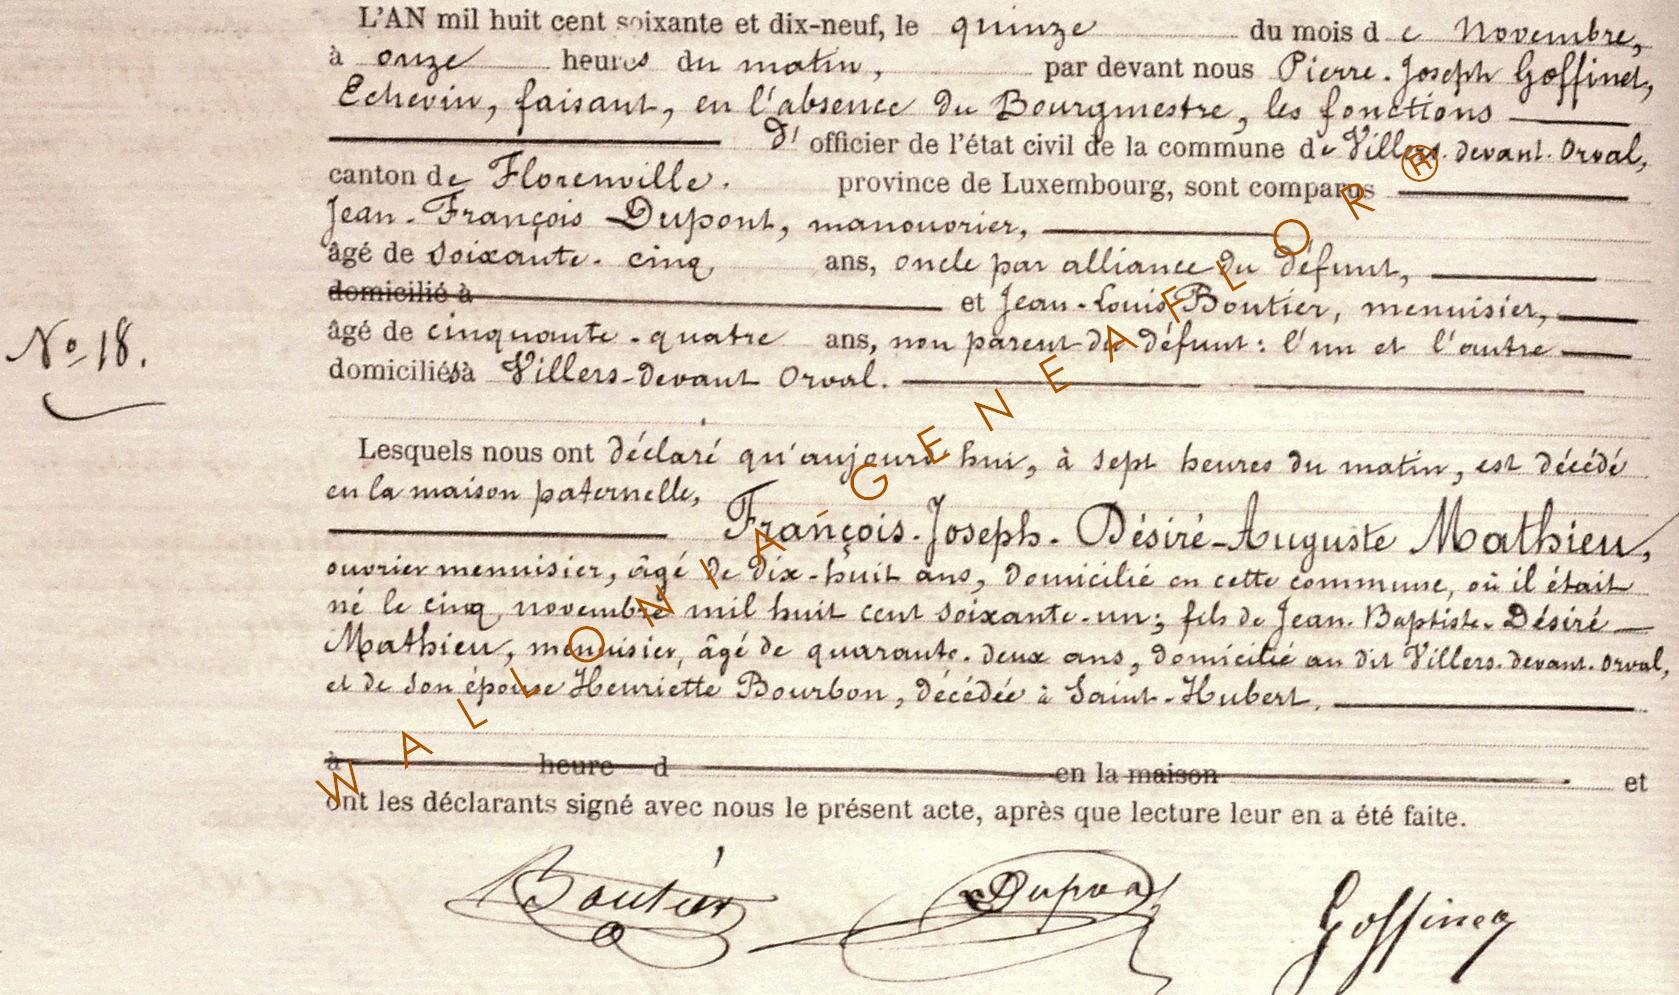 L'AN mil huit cent soixante et dix-neuf, le quinze du mois de Novembre,
à onze heures du matin, par devant nous Pierre-Joseph Goffinet,
Echevin, faisant, en l'absence du Bourgmestre, les fonctions
d' officier de l'état civil de la commune de Villers-devant-Orval,
canton de Florenville. province de Luxembourg, sont comparus
Jean-François Dupont, manouvrier,
âgé de soixante-cinq ans, oncle par alliance du défunt,
domicilié à et Jean-Louis Boutier, menuisier,
N° 18.
âgé de cinquante-quatre ans, non parent du défunt: l'un et l'autre
domiciliés à Villers-devant Orval.
Lesquels nous ont déclaré qu'aujourd'hui, à sept heures du matin, est décédé
en la maison paternelle,
François-Joseph-Désiré-Auguste Mathieu,
ouvrier menuisier, âgé de dix-huit ans, domicilié en cette commune, où il était
né le cinq novembre mil huit cent soixante-un; fils de Jean-Baptiste-Désiré
Mathieu, menuisier, âgé de quarante-deux ans, domicilié au dit Villers-devant-Orval,
et de son épouse Henriette Bourbon, décédée à Saint-Hubert.
à heure d en la maison et
ont les déclarants signé avec nous le présent acte, après que lecture leur en a été faite.
Boutier Dupont Goffinet
WALLONIA GENEAFLOR ®